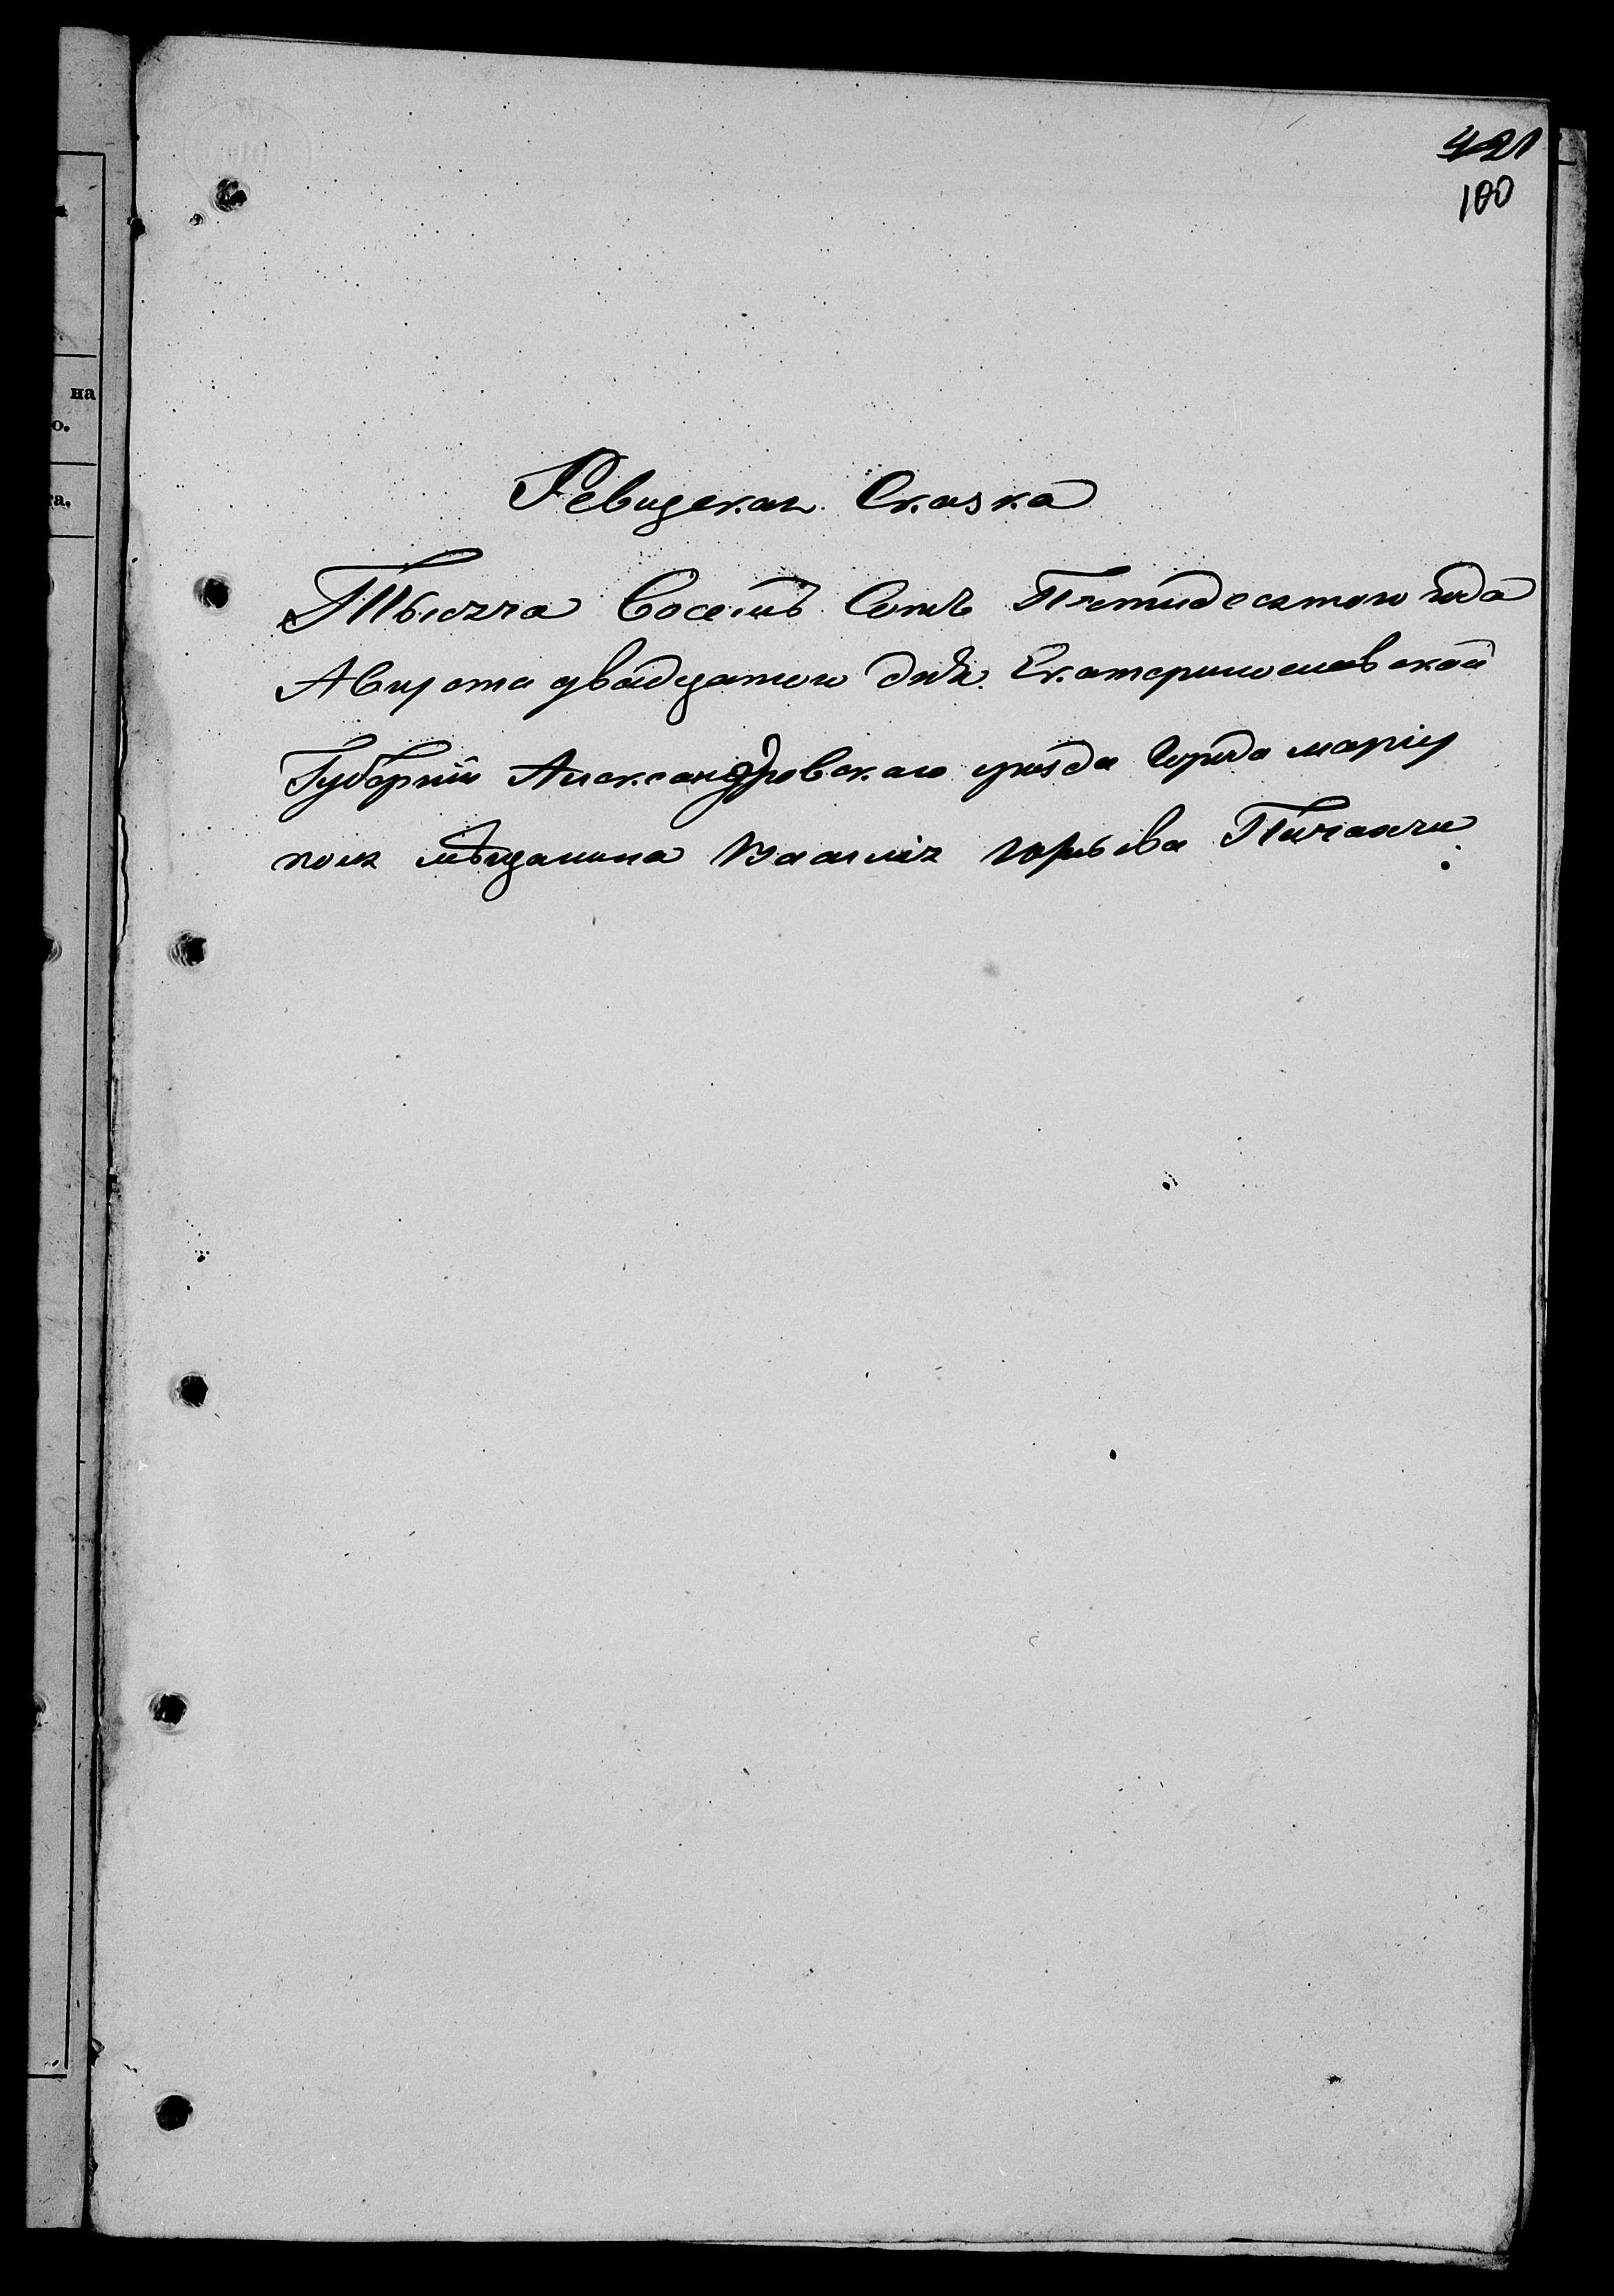 421
100
на
о.
а.
Ревизская Сказка
Тысяча Восемь Сотъ Пятидесятого года
Августа двадцатого дня. Екатеринославской
Губернии Александровского уезда Города мариу
поля мѣщанина Василия Юрьева